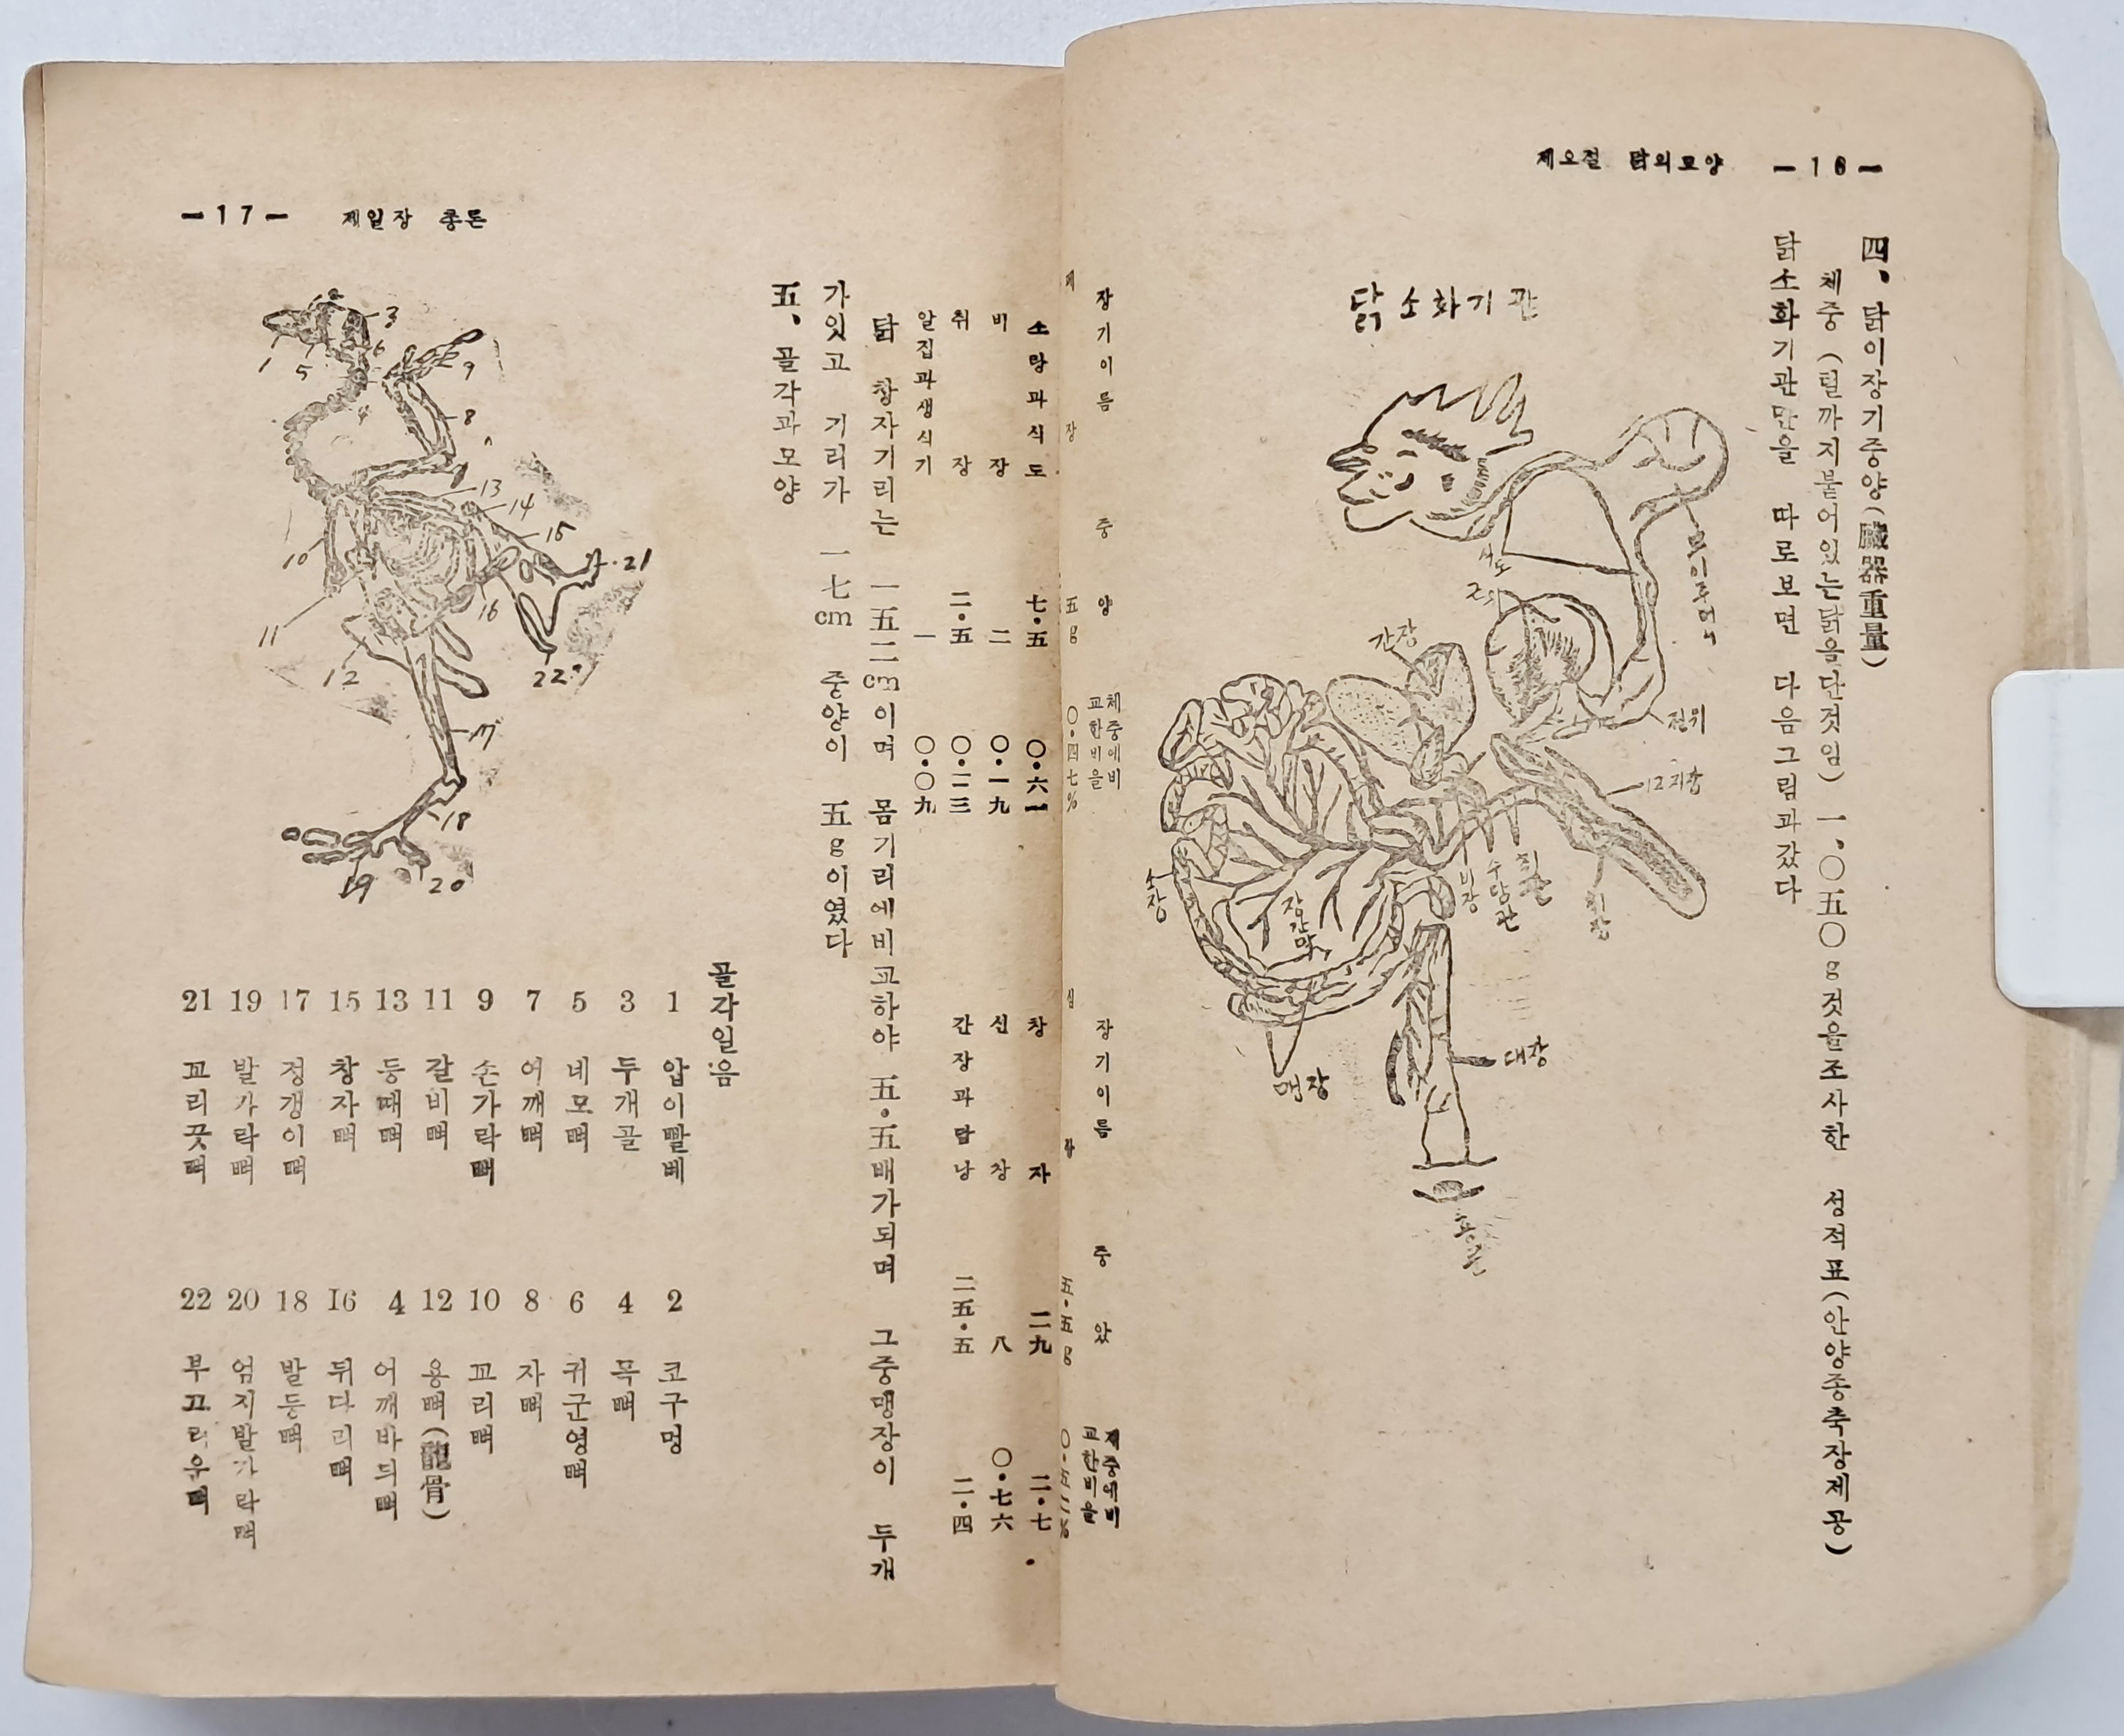 제오절 닭의모양 ー16ー
四、닭이장기중양(臟器重量)
체중(털까지붙어있는닭음단것임)一、〇五〇g것을조사한 성적표(안양종축장제공)
닭소화기관만을 따로보면 다음그림과갔다
닭소화기관
식도
모이주머니
간장
전위
12지장
소장
장간막
비장
수담관
췌장
맹장
대장
장기이름 중양 체중에비교한비율 장기이름 중았 체중에비교한비율
五g 〇・四七% 심 五・五g
소랑과식도 七・五 〇・六一 창자 二九 二・七
비장 二 〇・一九 신장 八 〇・七六
취장 二・五 〇・二三 간장과담낭 二五・五 二・四
알집과생식기 一 〇・〇九
닭 창자기리는 一五二cm이며 몸기리에비교하야 五・五배가되며 그중맹장이 두개
가있고 기리가 一七cm 중양이 五g이였다
五、골각과모양
ー17ー 제일장 총론
1
3
5
6
9
8
13
14
15
10
21
11
16
12
22
17
18
19
20
골각일음
1 압이빨베 2 코구멍
3 두개골 4 목뼈
5 네모뼈 6 귀군영뼈
7 어깨뼈 8 자뼈
9 손가락뼈 10 꼬리뼈
11 갈비뼈 12 용뼈(龍骨)
13 등때뼈 4 어깨바듸뼈
15 창자뼈 16 뒤다리뼈
17 정갱이뼈 18 발등뼈
19 발가락뼈 20 엄지발가락뼈
21 꼬리끗뼈 22 부끄러운뼈